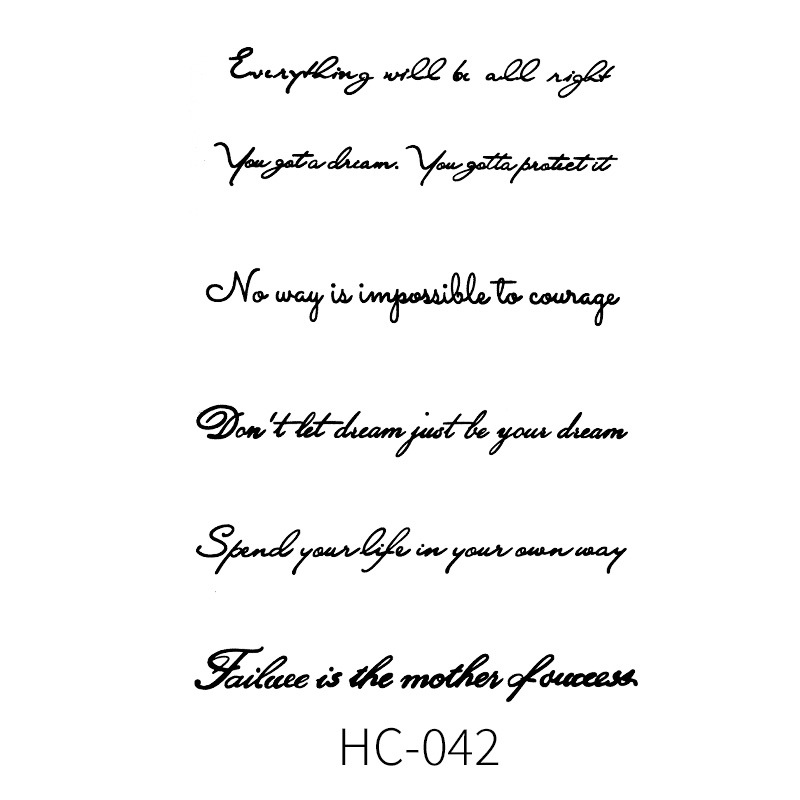 Everything will be all right
You got a dream. You gotta protect it
No way is impossible to courage
Don't let dream just be your dream
Spend your life in your own way
Failure is the mother of success
HC-042